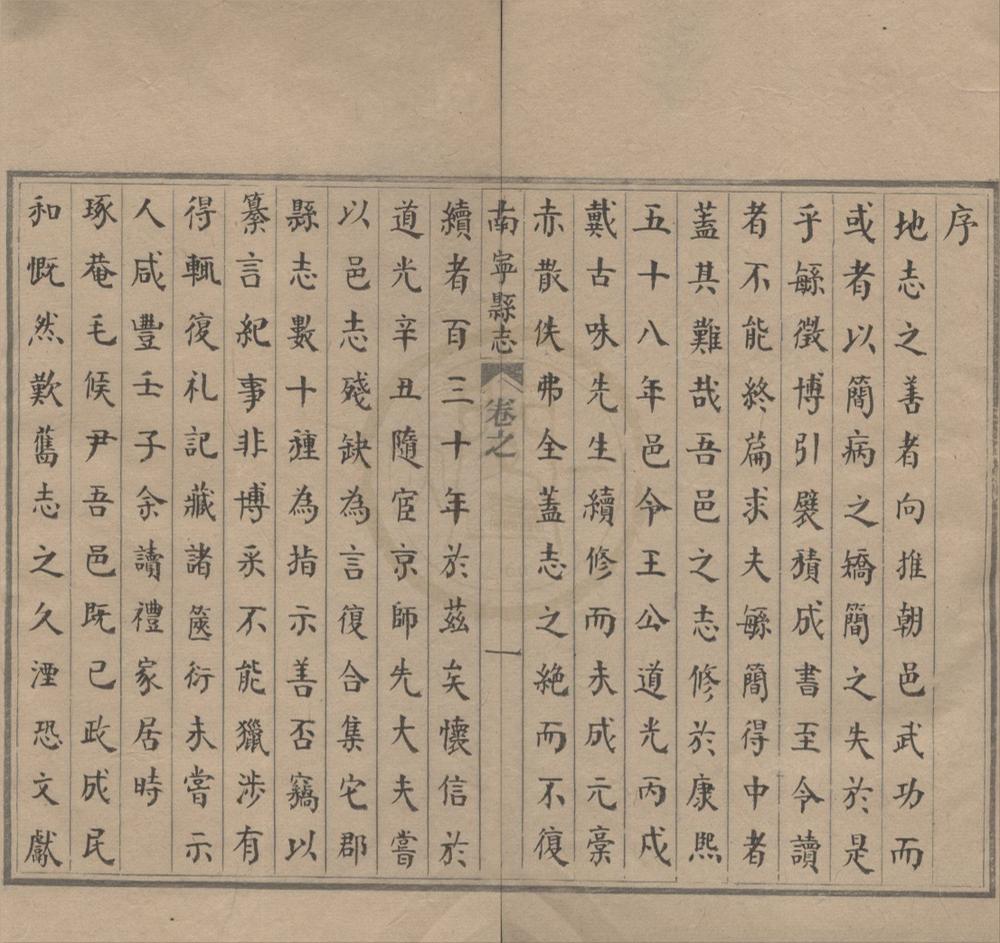 序
地志之善者向推朝邑武功而
或者以簡病之矯簡之失於是
乎緐徵博引襞積成書至令讀
者不能終篇求夫緐簡得中者
蓋其難哉吾邑之志修於康熙
五十八年邑令王公道光丙戌
戴古味先生續修而未成元稾
赤散佚弗全蓋志之絶而不復
南寧縣志 卷之 一
續者百三十年於茲矣懷信於
道光辛丑隨宦京師先大夫嘗
以邑志殘缺為言復合集它郡
縣志數十種為指示善否竊以
纂言紀事非博采不能獵涉有
得輒復札記藏諸篋衍未嘗示
人咸豐壬子余讀禮家居時
琢菴毛候尹吾邑既已政成民
和慨然歎舊志之久湮恐文獻